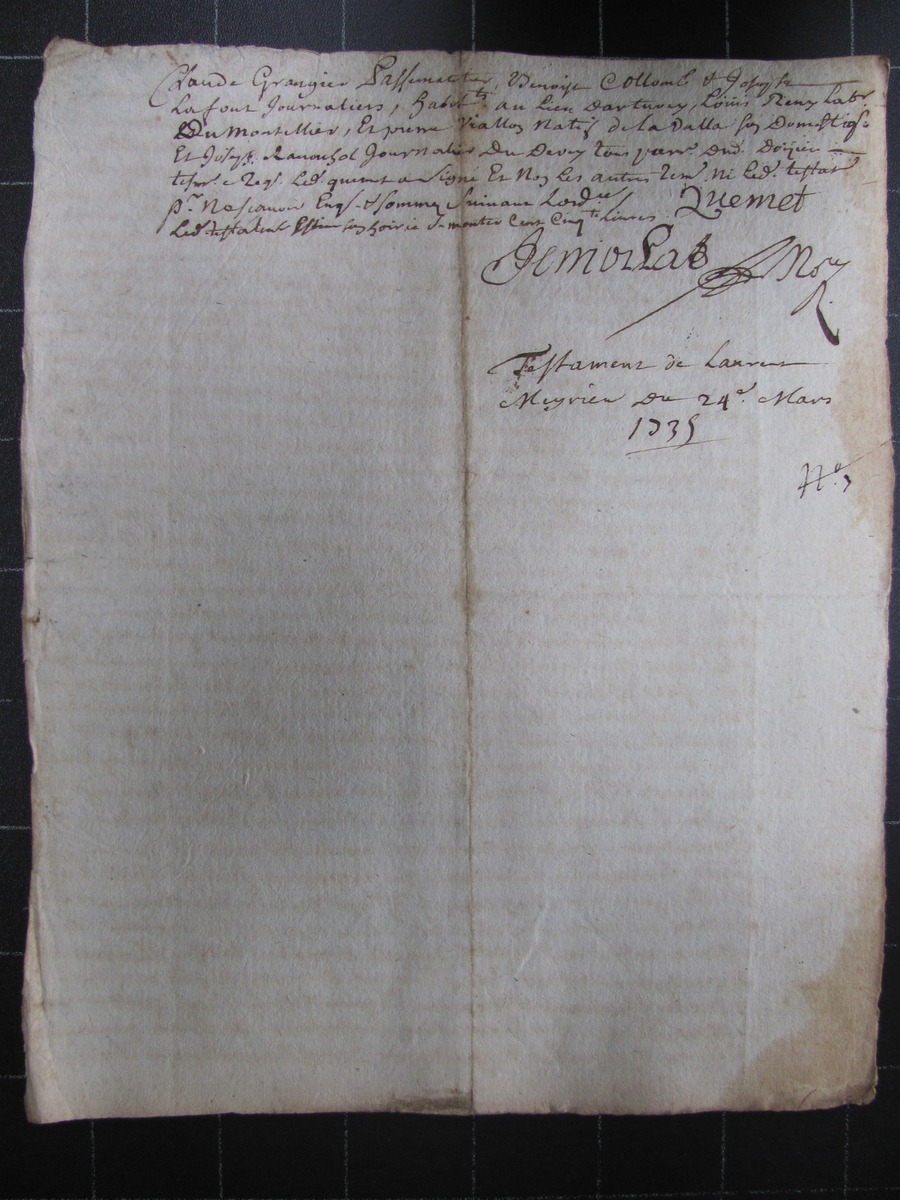 Claude Grangier Passementier, Benoist Collomb & Joseph
Lafont Journaliers, habit.ts au lieu darturey, Louis Remy Lab.r
Du Montellier, Et pierre Viallon Natif de la Valla son Domestique
Et Joseph Ranouhol Journalier Du Devey tous parr. dud.
tesm. Req. Led. quemet a signé Et Non Les autres tem. Ni Led. testat.r
p.r Ne scavoir Enq. & sommez suivant Lord.ce
Led. testateur son hoirie monter Cent Cinq.te Livres. Quemet
Not.re
Testament de Laurent
Meyrieu Du 24.e Mars
1735
N.o